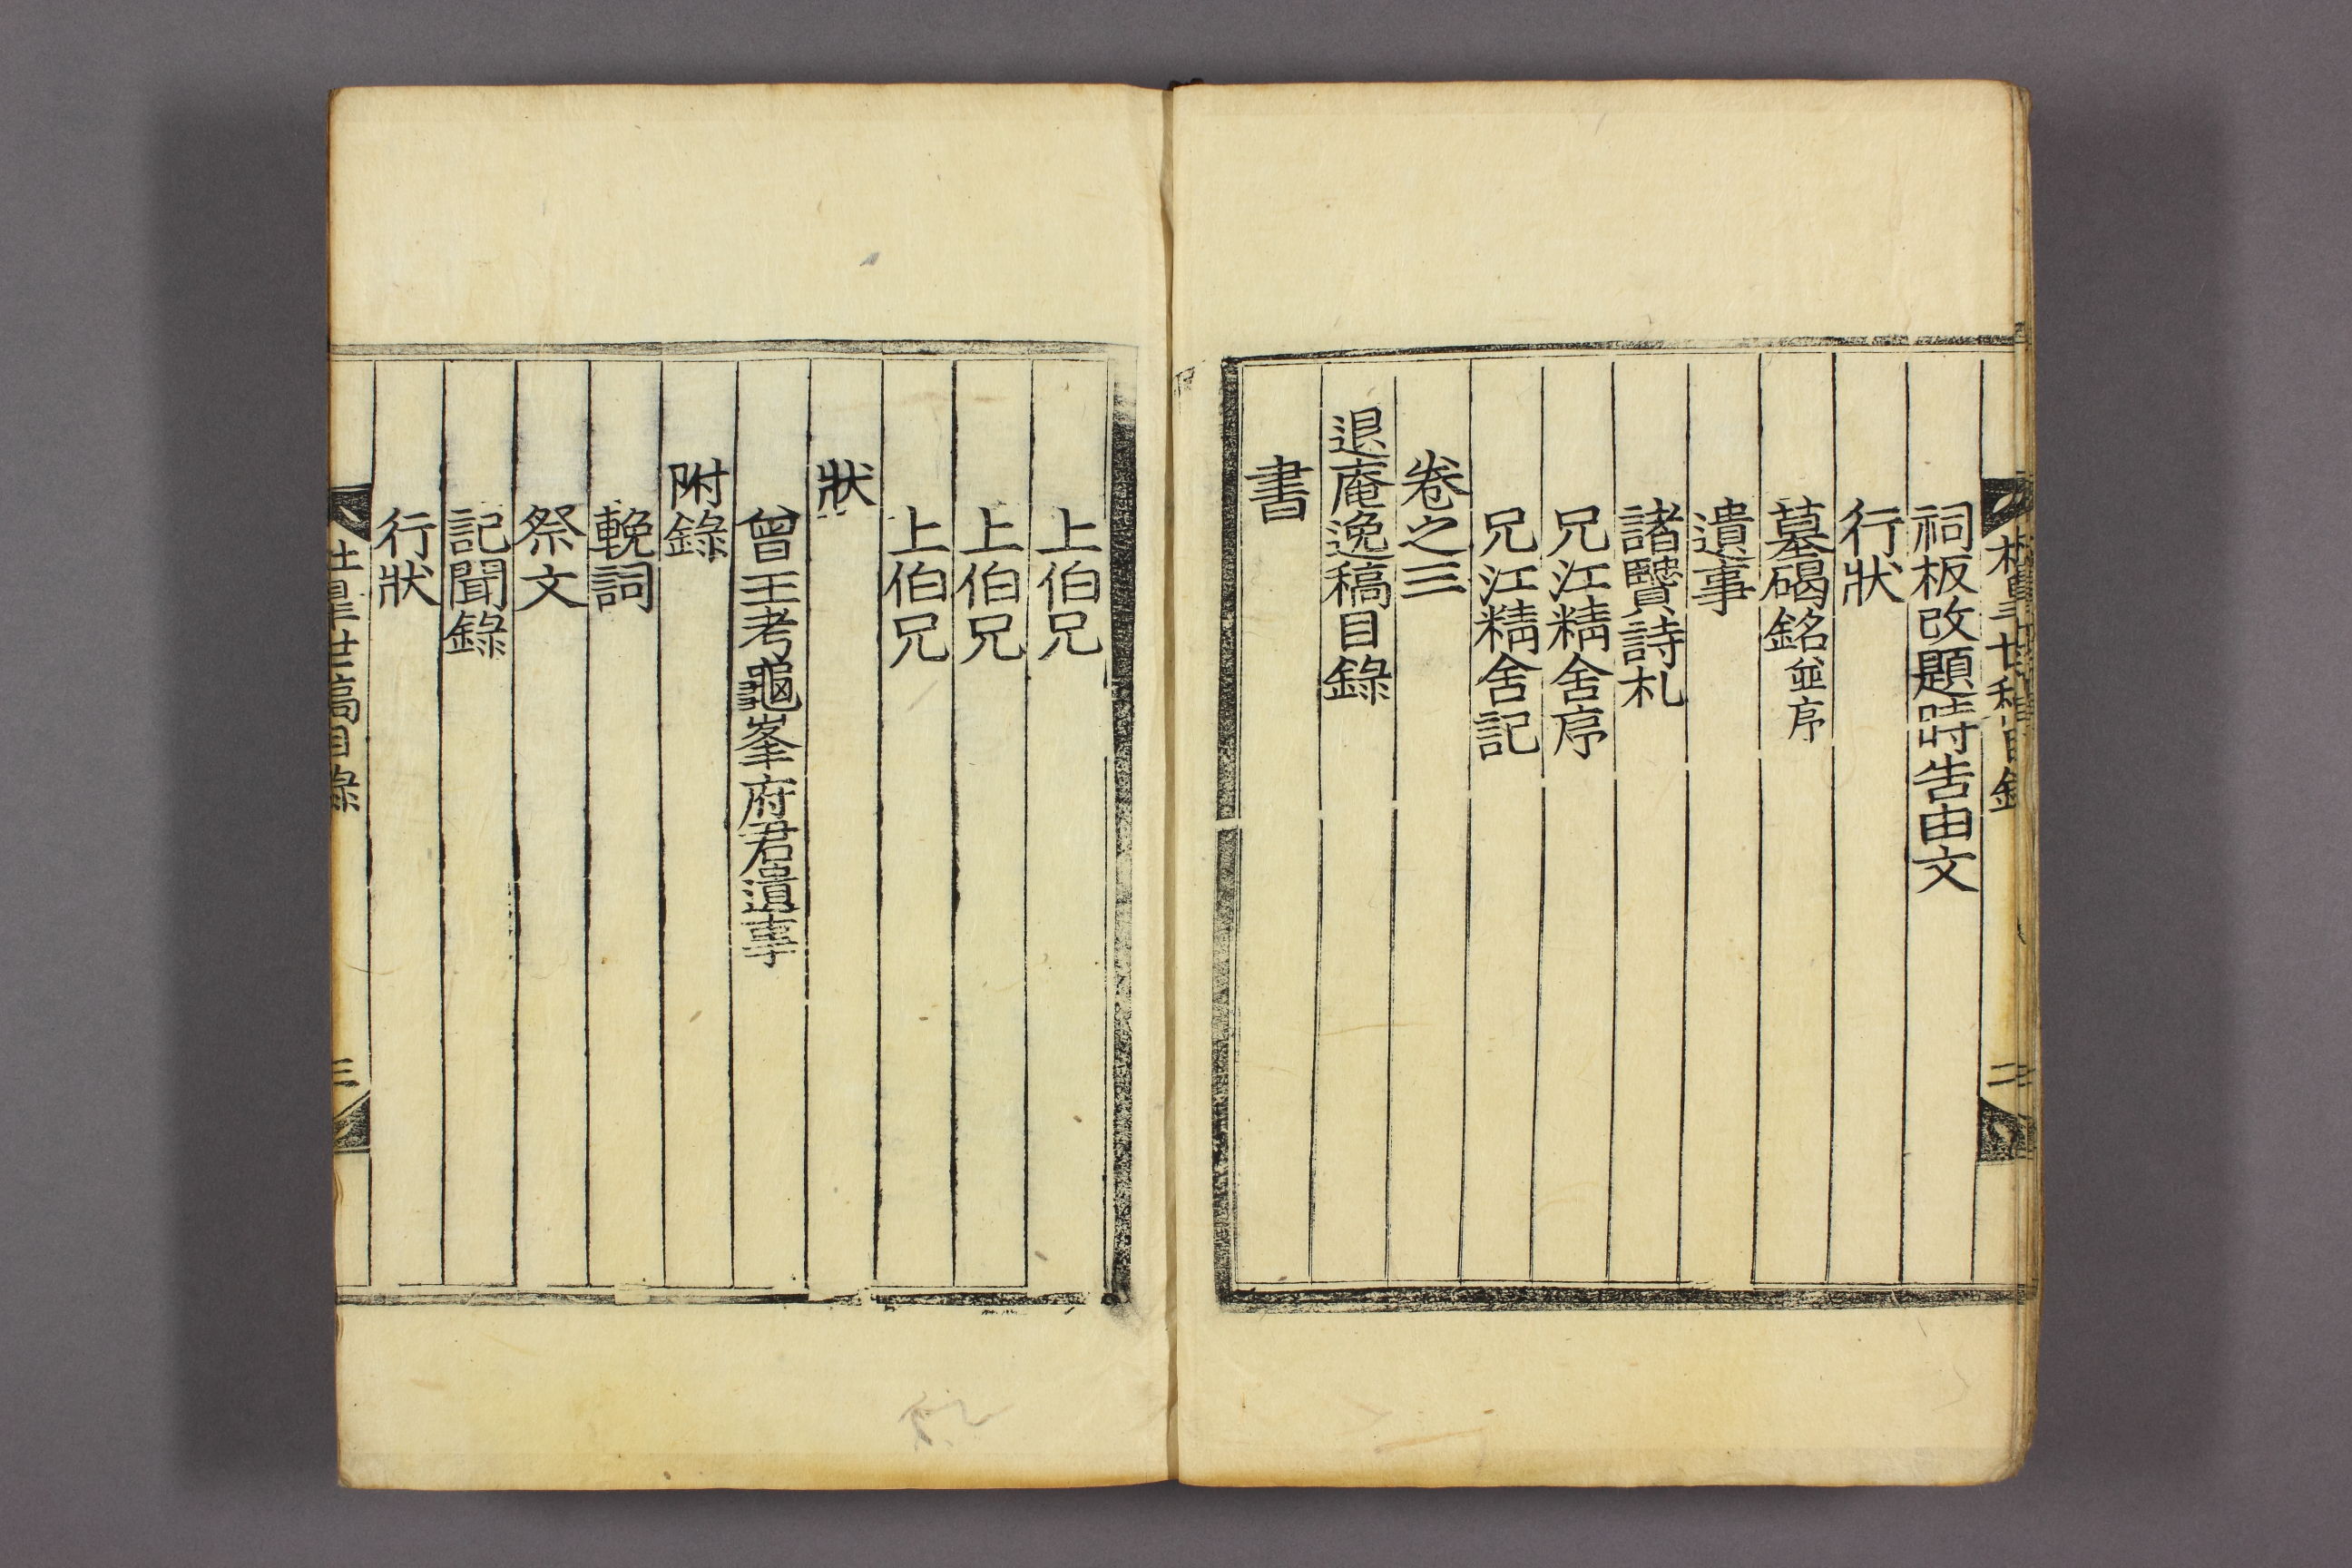 祠板改題時告由文
行狀
墓碣銘並序
遺事
諸賢詩札
兄江精舍序
兄江精舍記
卷之三
退庵逸稿目錄
書
上伯兄
上伯兄
上伯兄
狀
曾王考龜峯府君遺事
附錄
輓詞
祭文
記聞錄
行狀
世稿目錄
三